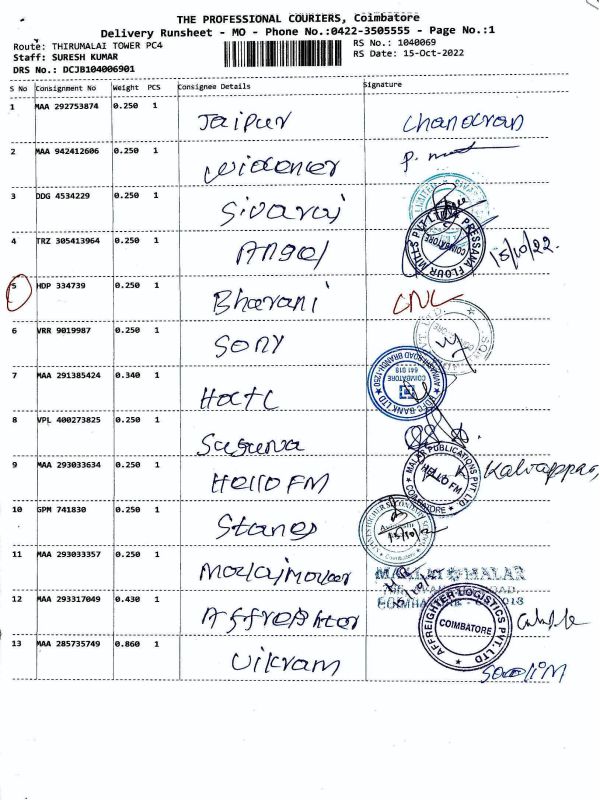 THE PROFESSIONAL COURIERS, Coimbatore
Delivery Runsheet - MO - Phone No.:0422-3505555 - Page No.:1
Route: THIRUMALAI TOWER PC4
RS No.: 1040069
Staff: SURESH KUMAR
RS Date: 15-Oct-2022
DRS No.: DCJB104006901
S No Consignment No Weight PCS Consignee Details Signature
1 MAA 292753874 0.250 1 Jaipur Chandran
2 MAA 942412606 0.250 1 Widener
3 DDG 4534229 0.250 1 Sivaraj
4 TRZ 305413964 0.250 1 Angel 15/10/22.
PRESSANA FLOUR MILLS PVT LTD
COIMBATORE
5 HDP 334739 0.250 1 Bharani CNL
6 VRR 9019987 0.250 1 SONY
7 MAA 291385424 0.340 1 HDFC
HDFC BANK LTD
COIMBATORE
641 018
8 VPL 400273825 0.250 1 Suguna
9 MAA 293033634 0.250 1 Hello FM
MALAR PUBLICATIONS PVT LTD
HELLO FM
COIMBATORE
10 GPM 741830 0.250 1 Stanes
11 MAA 293033357 0.250 1 Malaimalar
MALAI MALAR
12 MAA 293317049 0.430 1 Affreighter
AFFREIGHTER LOGISTICS PVT. LTD
COIMBATORE
13 MAA 285735749 0.860 1 Vikram